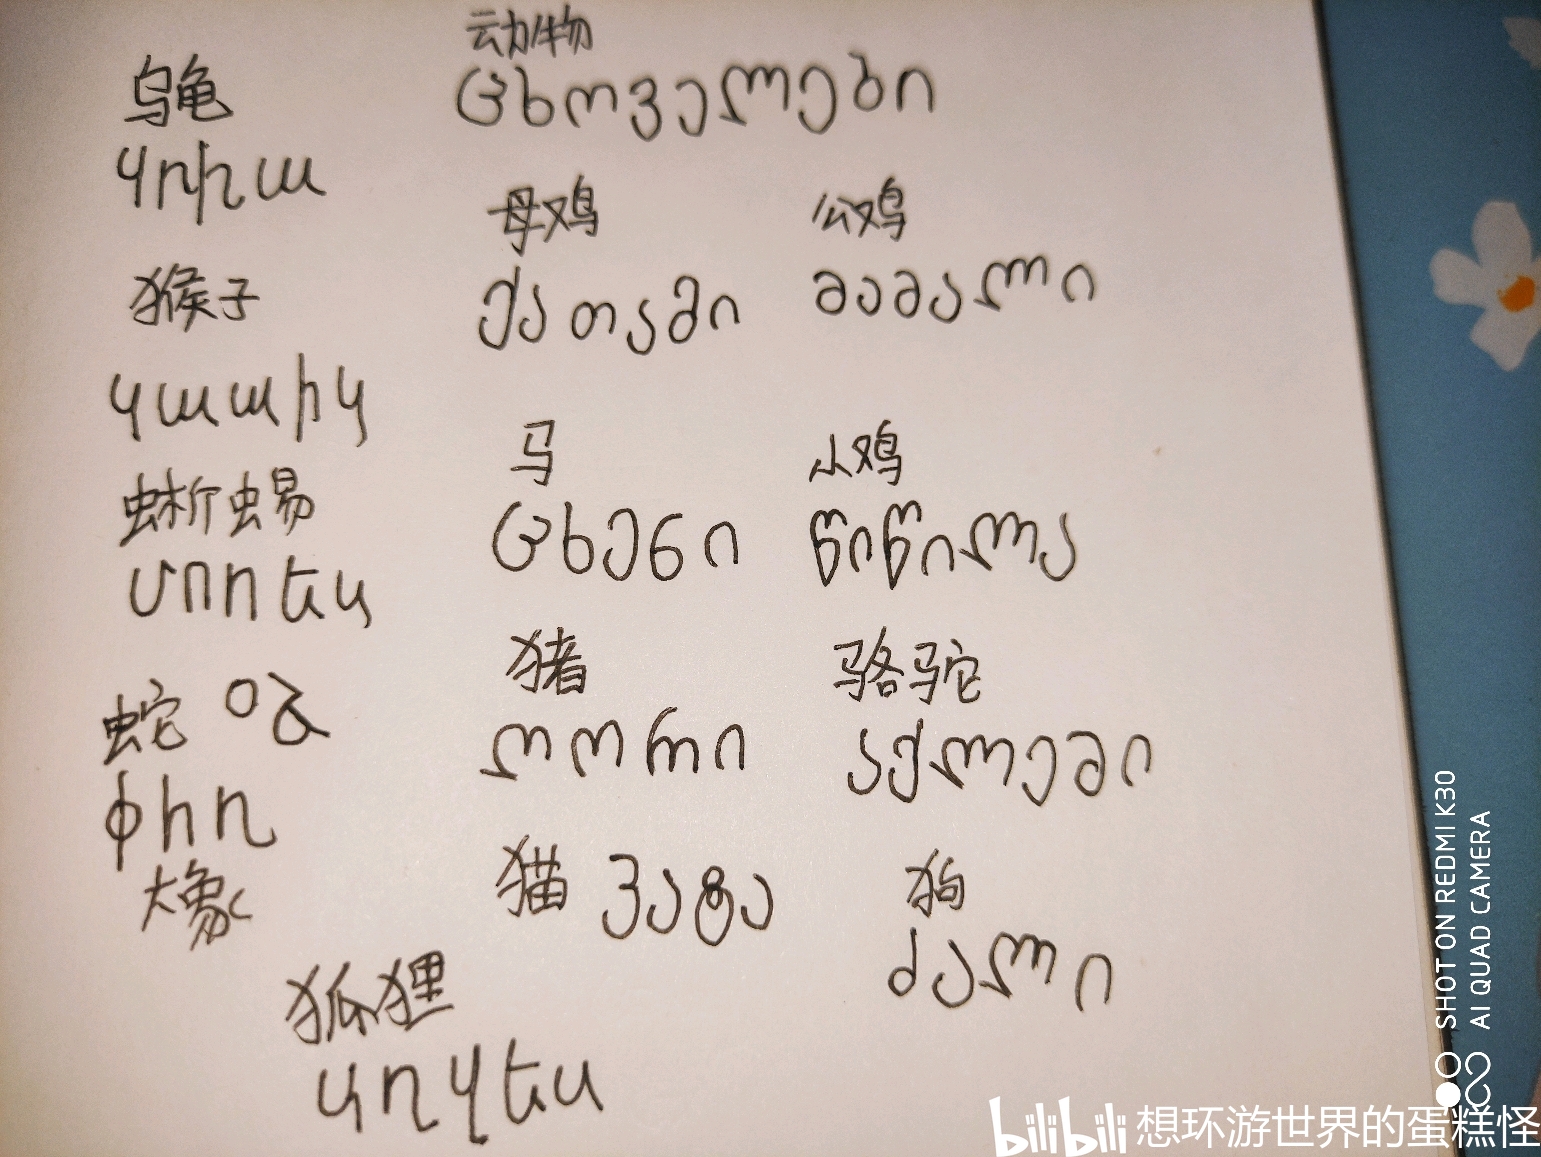 动物
ცხოველები
乌龟
կրիա
母鸡 公鸡
ქათამი მამალი
猴子
կապիկ
马 小鸡
ცხენი წიწილა
蜥蜴
մողես
猪 骆驼
ღორი აქლემი
蛇 օձ
փիղ
大象
猫 კატა 狗
ძალი
狐狸
աղվես
SHOT ON REDMI K30
AI QUAD CAMERA
bilibili 想环游世界的蛋糕怪